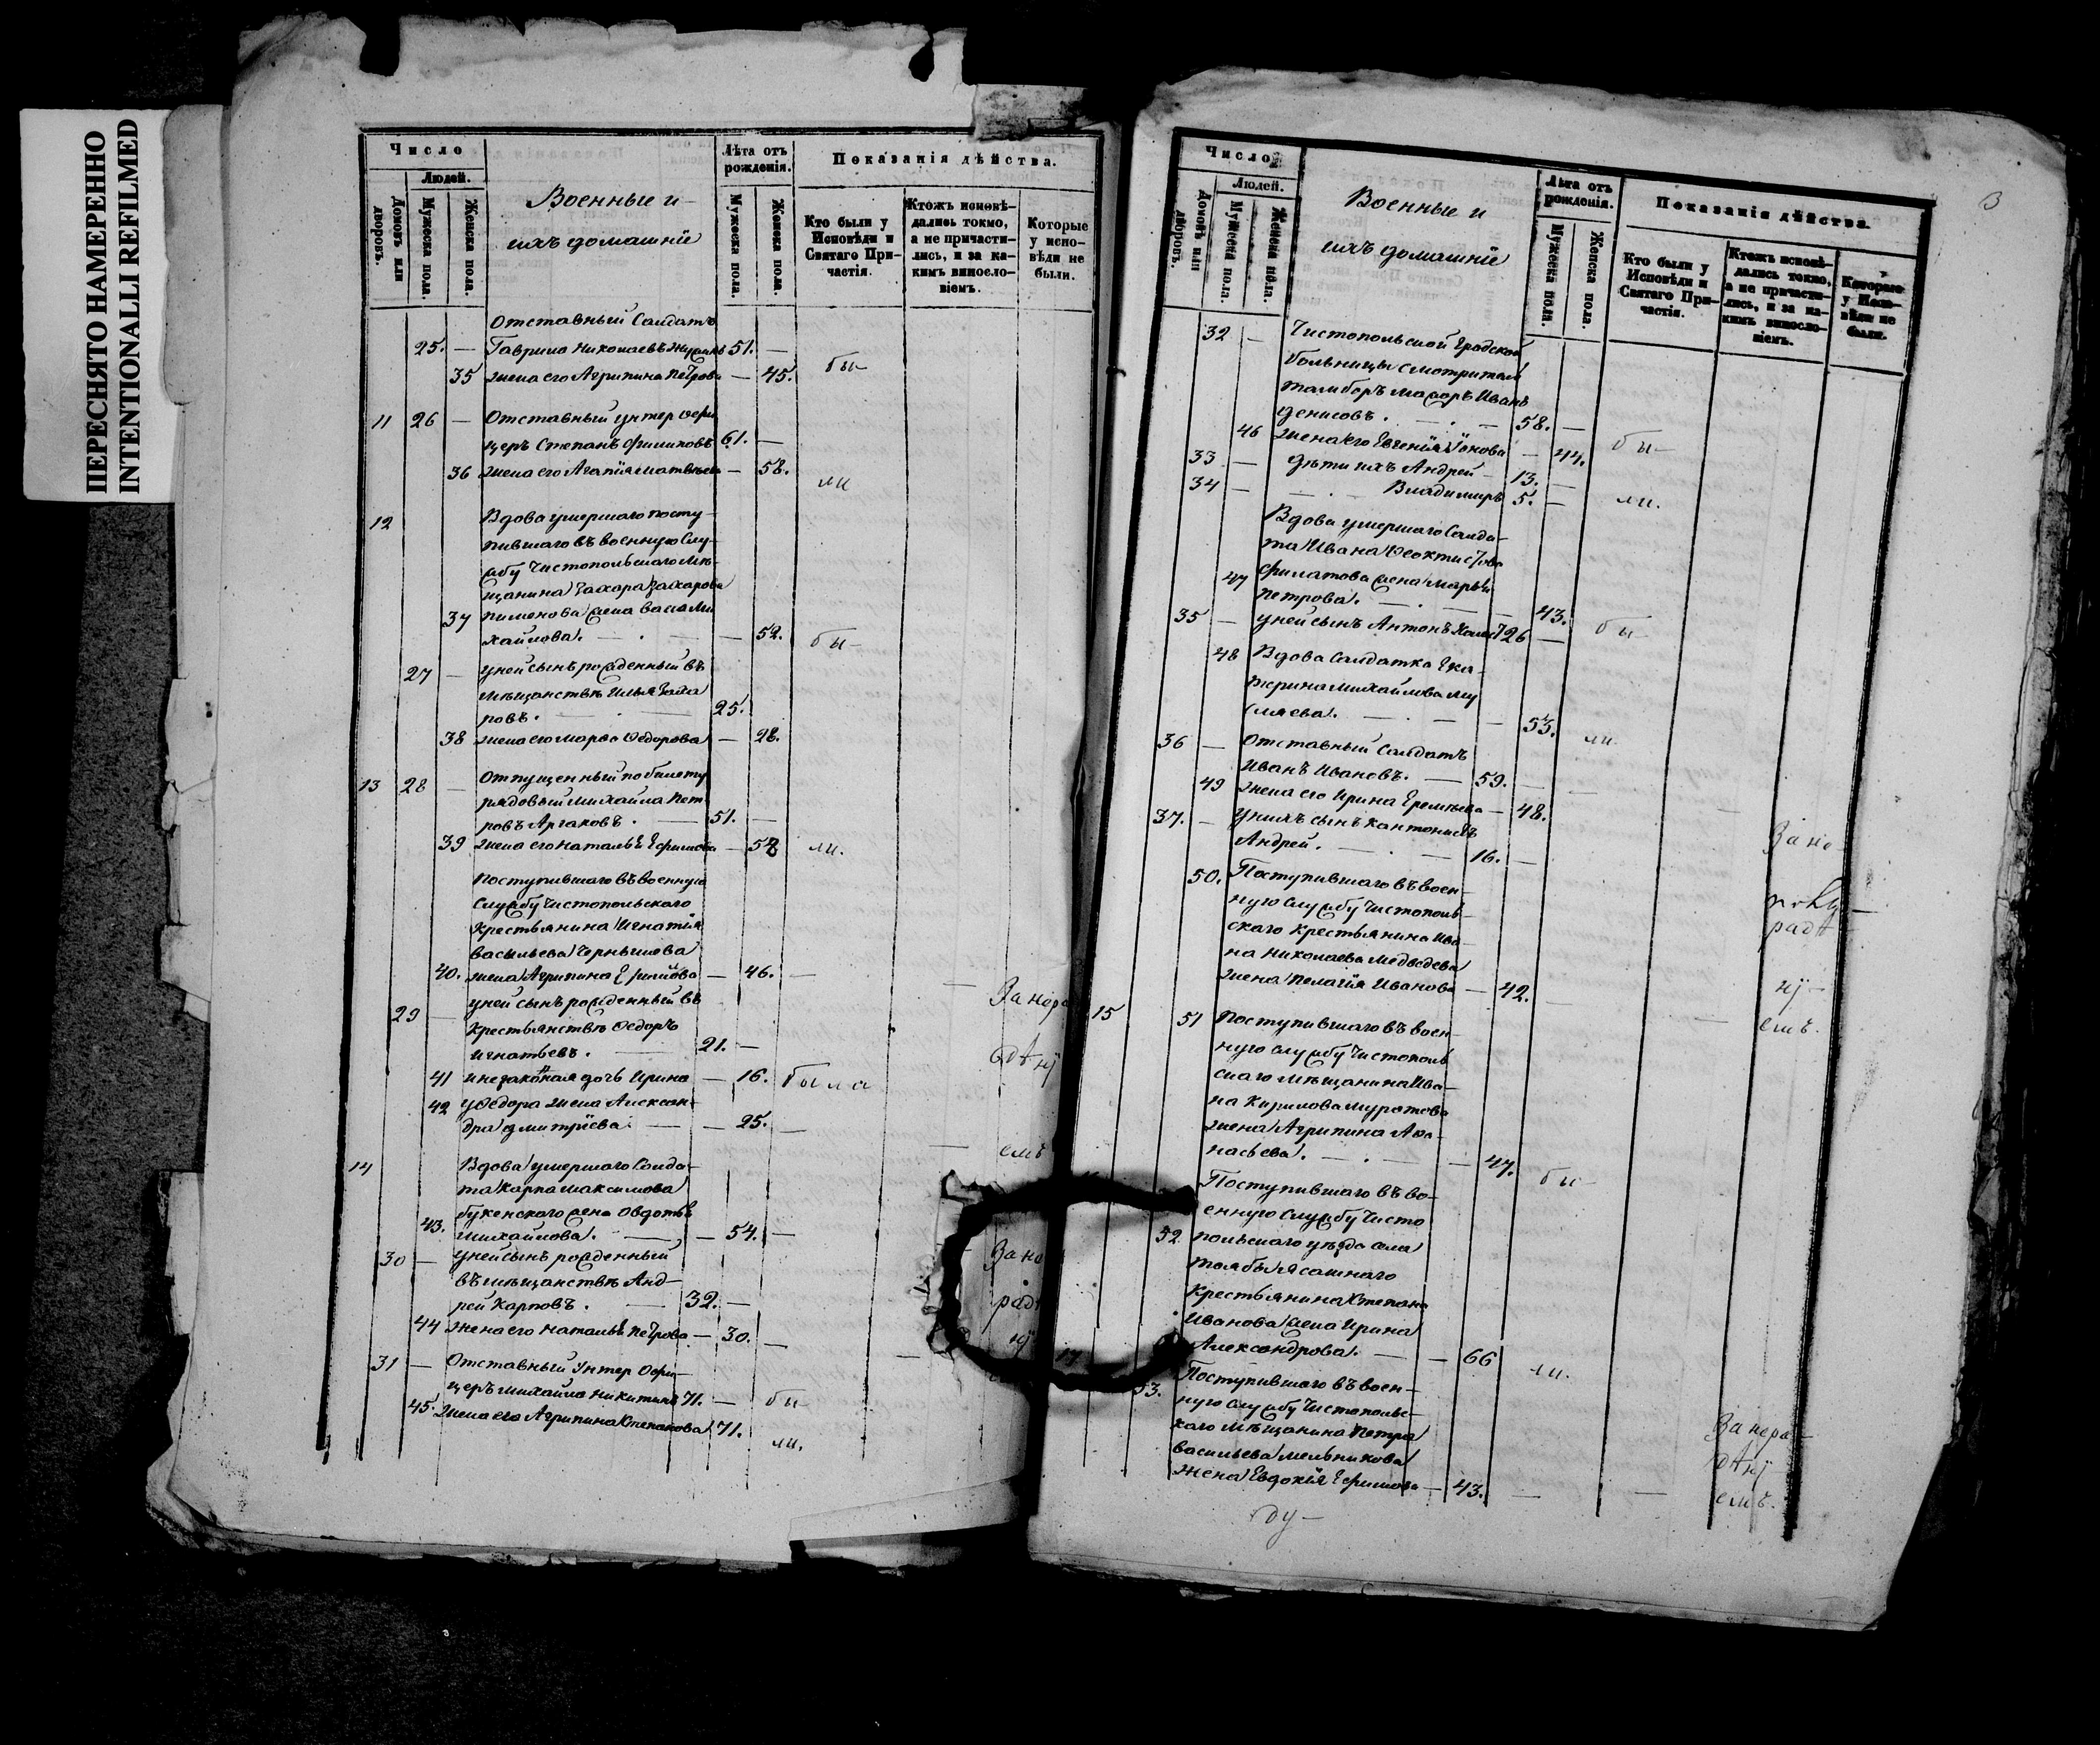 ПЕРЕСНЯТО НАМЕРЕННО
INTENTIONALLI REFILMED
Число
Людей.
Домовъ или дворовъ.
Мужеска пола.
Женска пола.
Военные и
ихъ домашніе
Лѣта отъ рожденія.
Мужеска пола.
Женска пола.
Показанія дѣйства.
Кто были у Исповѣди и Святаго Причастія.
Ктожъ исповѣдались токмо, а не причастились, и за какимъ винословіемъ.
Которые у исповѣди не были.
Отставный Солдатъ
25. — Гаврила Николаевъ 51. —
35 жена его Агрипина Петрова — 45. бы-
11 26 — Отставный унтер офи
церъ Степанъ Филиповъ 61. —
36 жена его Агапія Матвѣева — 58. ли
12 Вдова умершаго посту-
пившаго въ военную слу-
жбу Чистопольскаго мѣ-
щанина Захара Захарова
37 Пименова жена Васса Ми
хайлова. — . — — 52. бы-
27 — у ней сынъ рожденный въ
мѣщанствѣ Илья Заха
ровъ. — . — 25.
38 жена его Марва Ѳедорова — 28.
13 28 — Отпущенный по билету
рядовый Михайла Пет-
ровъ Аргаковъ. — 51. —
39 жена его Наталья Ефимова — 52 ли.
Поступившаго въ военную
службу Чистопольскаго
крестьянина Игнатія
Васильева Чернышова
40. жена Агрипина Ефимова — 46. —
29 — у ней сынъ рожденный въ — За нера
крестьянствѣ Ѳедоръ
Игнатьевъ. — 21. — дѣнї
41 и незаконая дочь Ирина — 16. была
42 у Ѳедора жена Алексан-
дра Дмитріева. — — 25. — — емъ
14 Вдова умершаго Солда-
та Карпа Максимова
Букенскаго жена Овдотья
43. Михайлова. — — 54. —
30 — у ней сынъ рожденный — За не
въ мѣщанствѣ Анд-
рей Карповъ. — 32. — радѣ
44 жена его Наталья Петрова — 30. — нї
31 — Отставный Унтер Офи-
церъ Михайла Никитинъ 71. — бы-
45. жена его Агрипина Степанова 71. ли.
3
Число
Людей.
Домовъ или дворовъ.
Мужеска пола.
Женска пола.
Военные и
ихъ домашніе
Лѣта отъ рожденія.
Мужеска пола.
Женска пола.
Показанія дѣйства.
Кто были у Исповѣди и Святаго Причастія.
Ктожъ исповѣдались токмо, а не причастились, и за какимъ винословіемъ.
Которые у Исповѣди не были.
32 — Чистопольской градской
больницы смотритель
тамборъ мажоръ Иванъ
Денисовъ. — . — 58. —
46 жена его Евгенія Іонова — 44. бы-
33 — дѣти ихъ Андрей — 13. —
34 — — . — Владимиръ 5. — ли.
Вдова умершаго Солда-
та Ивана Ѳеоктистова
47 Филатова жена Марья
Петрова. — . — — 43.
35 — у ней сынъ Антонъ 26 — бы-
48 Вдова Солдатка Ека-
терина Михайлова Му
сляева. — . — — 53. ли.
36 — Отставный Солдатъ
Иванъ Ивановъ. — 59. —
49 жена его Ирина Еремѣева — 48.
37. — у нихъ сынъ кантонистъ
Андрей. — . — 16. — За не
50. Поступившаго въ воен-
ную службу Чистополь-
скаго крестьянина Ива- радѣ-
на Николаева Медведева
жена Пелагія Иванова — 42. — нї-
15 51 Поступившаго въ воен- — емъ.
ную службу Чистополь
скаго мѣщанина Ива-
на Кирилова Муратова
жена Агрипина Аѳа-
насьева. — . — — 47. бы-
Поступившаго въ во-
енную службу Чисто
52 польскаго уѣзда села
ясашнаго
крестьянина Степана
Иванова жена Ирина
Александрова. — — 66 ли.
53. Поступившаго въ воен-
ную службу Чистополь-
скаго мѣщанина Петра За нера-
Васильева Мельникова дѣнї
жена Евдокія Ефимова — 43. — — емъ.
ду-